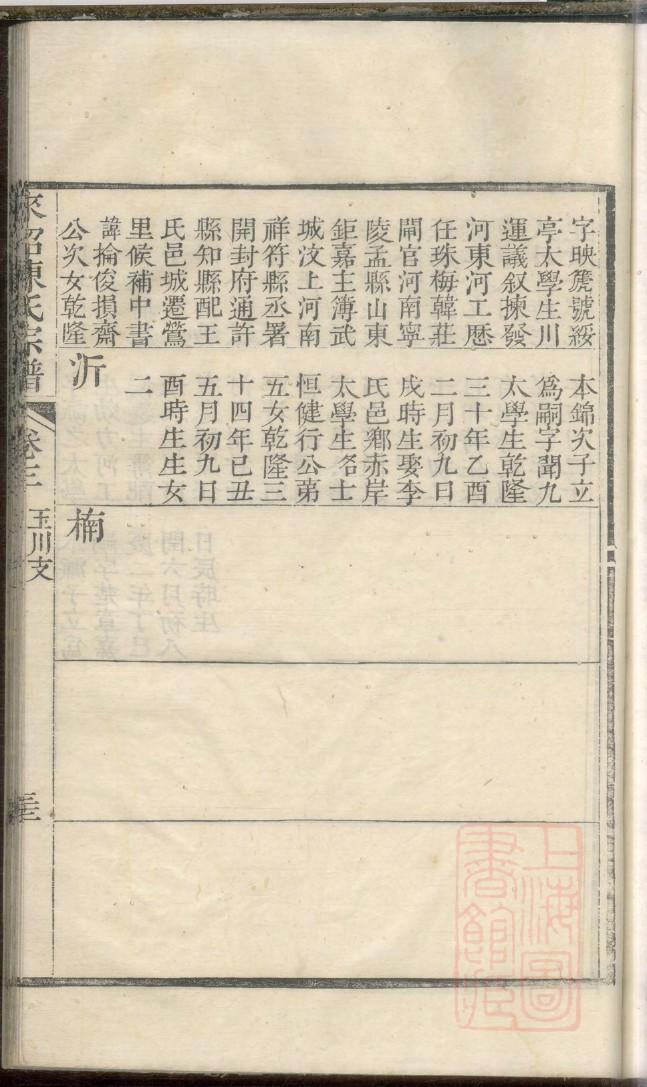 字映麂號綏
亭太學生川
運議叙揀發
河東河工歷
任珠梅韓莊
閘官河南寧
陵孟縣山東
鉅嘉主簿武
城汶上河南
祥符縣丞署
開封府通許
縣知縣配王
氏邑城遷鶯
里候補中書
諱掄俊損齋
公次女乾隆
本錦次子立
爲嗣字聞九
太學生乾隆
三十年乙酉
二月初九日
戌時生娶李
氏邑鄉赤岸
太學生名士
恒健行公第
五女乾隆三
十四年己丑
五月初九日
酉時生生女
二
沂
楠
陳氏宗譜
卷三
玉川支
上海圖書館藏